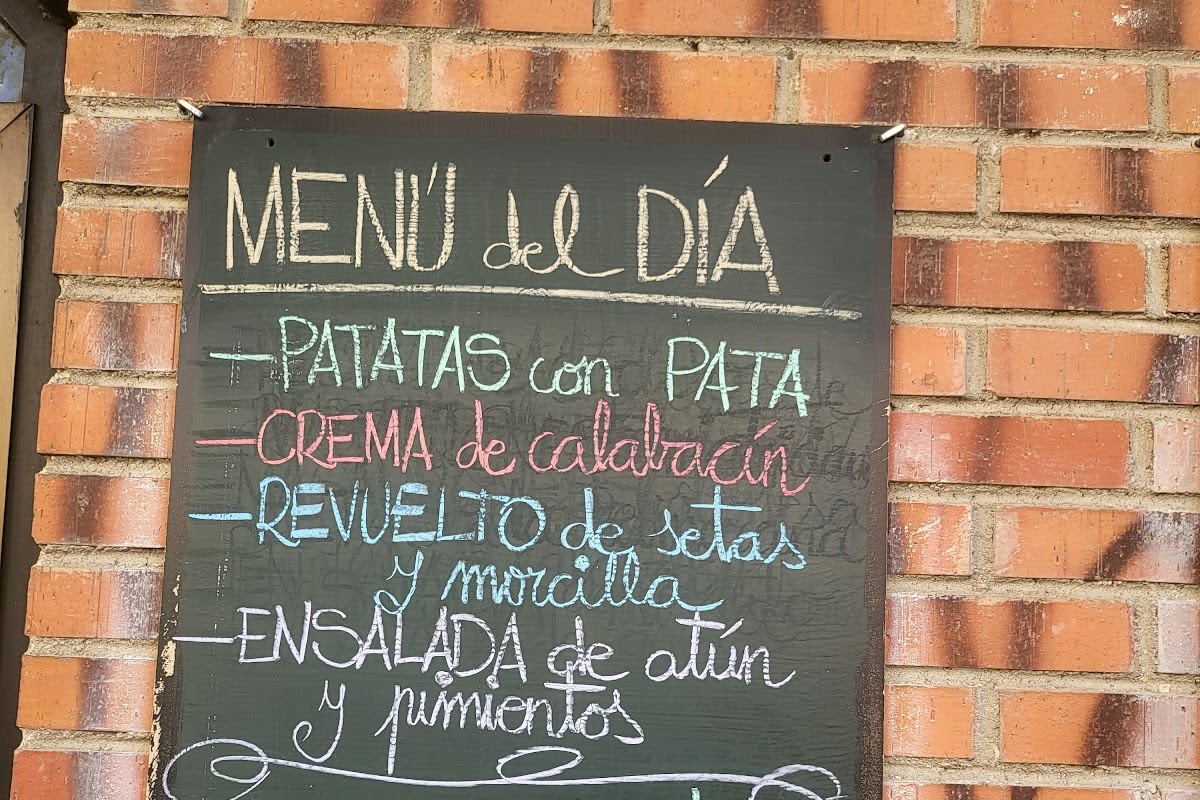 MENÚ del DÍA
- PATATAS con PATA
- CREMA de calabacín
- REVUELTO de setas
y morcilla
- ENSALADA de atún
y pimientos